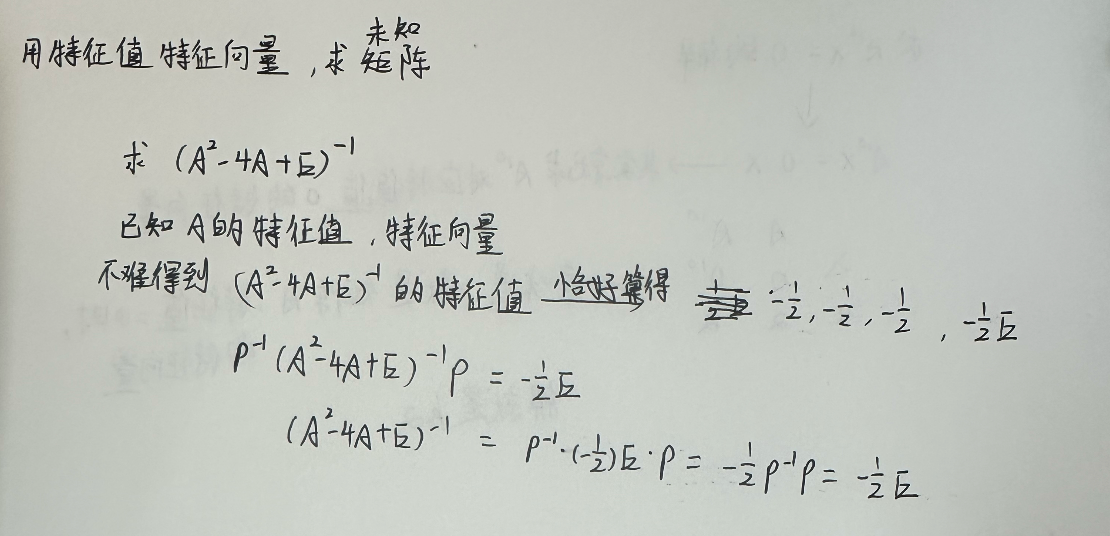 用特征值 特征向量，求 未知矩阵
求 (A²-4A+E)⁻¹
已知 A的特征值，特征向量
不难得到 (A²-4A+E)⁻¹ 的特征值 恰好算得 -1/2, -1/2, -1/2, -1/2 E
P⁻¹(A²-4A+E)⁻¹P = -1/2 E
(A²-4A+E)⁻¹ = P⁻¹·(-1/2)E·P = -1/2 P⁻¹P = -1/2 E